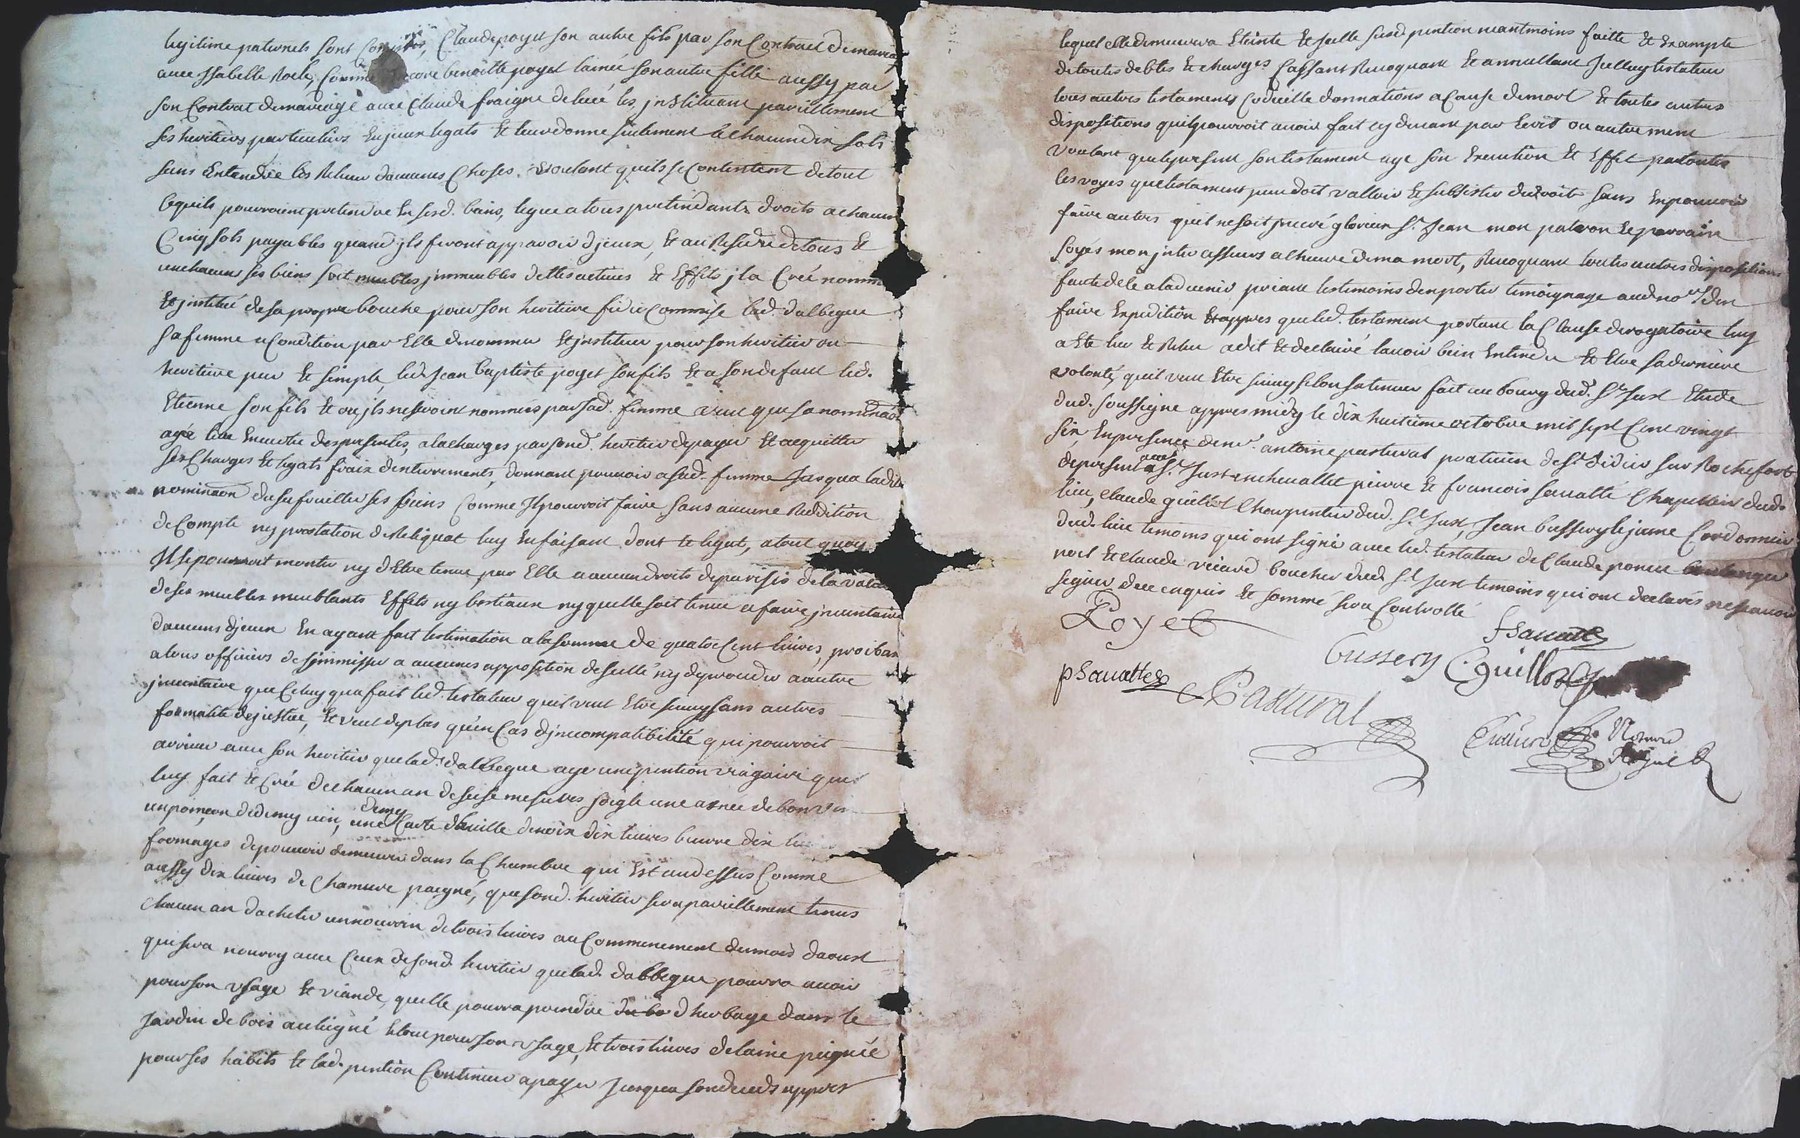 legitime paternels sont compris, Claude poyet son autre fils par son Contrat demariage
avec Isabelle Comme encore benoitte poyet lainee son autre fille aussy par
son Contrat demariage avec Claude fraigne deluré les jnstituant pareillement
ses heritiers particuliers Enjceux legats Et leur donne seulement achacun dix sols
sans Entendre les Relever daucunes Choses. voulant quils se Contentent detout
cequils pourroient pretendre En sesd. biens, legue atous pretendants droits achacun
Cinq sols payables quand jls feront apparavoir djceux, Et au Residu detous Et
unchacuns ses biens soit meubles jmmeubles dettes actives Et Effets jla Creé nommé
Et jnstitué desa propre bouche pour son heritiere fidei Commise lad. dalbegue
sa femme a Condition par Elle denommer Et jnstituer pour son heritier ou
heritiere pur Et simple led. Jean Baptiste poyet son fils Et a son defaut led.
Etienne son fils Et ou jls ne seroient nommés par sad. femme veut que sa nominaon
ayé lieu En vertu des presentes, alacharges par sond. heritier depayer Et acquitter
ses Charges Et legats fraix denterrements, donnant pouvoir asad. femme Jusqua ladite
nominaon dusufruitter ses biens Comme Jl pouvoit faire sans aucune Reddition
de Compte ny prestation de Reliquat luy En faisant dont Et legat, atout quoy
Jl se pourroit monter ny dEtre tenue par Elle a aucun droits de parisis de la valeur
de ses meubles meublants Effets ny bestiaux ny quelle soit tenue a faire jnventaire
daucuns djceux En ayant fait lestimation a la somme de quatre Cent livres, prohibant
atous officiers de simmisser a aucunes apposition de scellé ny dy proceder a autre
jnventaire que Celuy qua fait led. testateur quil veut Etre suivy sans autres
formalité dejustice, Et veut deplus quen Cas djncompatibilité qui pourroit
arriver avec son heritier que lad. dalbegue aye une pention viagaire que
luy fait Et Creé de chacun an de seise mesures soigle une asnee de bon vin
un poinçon dedemy vin, une demy Carte dhuille denoix dix livres beurre dix
fromages de pouvoir demeurer dans la Chambre qui Est audessus Comme
aussy dix livres de Chanvre peigné, que sond. heritier sera pareillement tenus
chacun an dacheter un nourrin de trois livres au Commencement du mois daoust
qui sera nourry avec Ceux desond. heritier que lad. dalbegue pourra avoir
pour son usage Et viande, quelle pourra prendre dherbage dans le
Jardin de bois Et tout pour son usage, Et trois livres de laine peignée
pour ses habits Et lad. pention Continuer apayer Jusqua son deceds appres
lequel elle demeurera Eteinte Et Celle susd pention neantmoins faitte Et Exampte
de toutes debtes Et charges Cassant Revoquant Et annullant Jcelluy testateur
tous autres testaments Codicille donnations a Cause demort Et toutes autres
dispositions quil pourroit avoir fait cy devant par Ecrit ou autrement
voulant que le present son testament aye son Execution Et Effet par toutes
les voyes que testament peut Et doit valloir Et subsister de droit sans En pouvoir
faire autres quil ne soit preceé glorieux St. Jean mon patron Et parrain
soyés mon jntercesseurs a lheure de ma mort, Revoquant toutes autres dispositions
faute de le alad venir priant les temoins den porter temoignage aud nore Et den
faire Expedition Et appres que led. testament portant la Clause derogatoire luy
a Ete lu Et Relu a dit Et declaré lavoir bien Entendu Et Etre sa derniere
volonté quil veut Etre suivy selon sa teneur fait au bourg dud. St. Just Etude
dud. soussigné appres midy le dix huitieme octobre mil sept Cent vingt
six En presence de mr. antoine pasturat praticien de St. Didier sur Rochefort
depresent aud St. Just en chevallet pierre Et francois savatté Chapelliers dud.
lieu, claude guillot Charpentier dud. St. Just, Jean bussery le jeune Cordonnier
dud. lieu temoins qui ont signé avec led. testateur de Claude poncet
Et claude vicard boucher dud. St. Just temoins qui ont declarés ne scavoir
signer dece enquis Et sommé sera Controllé
Poyet
fsavatte
bussery
C. guillot
psavatte
Pasturat
Notaire
Royal